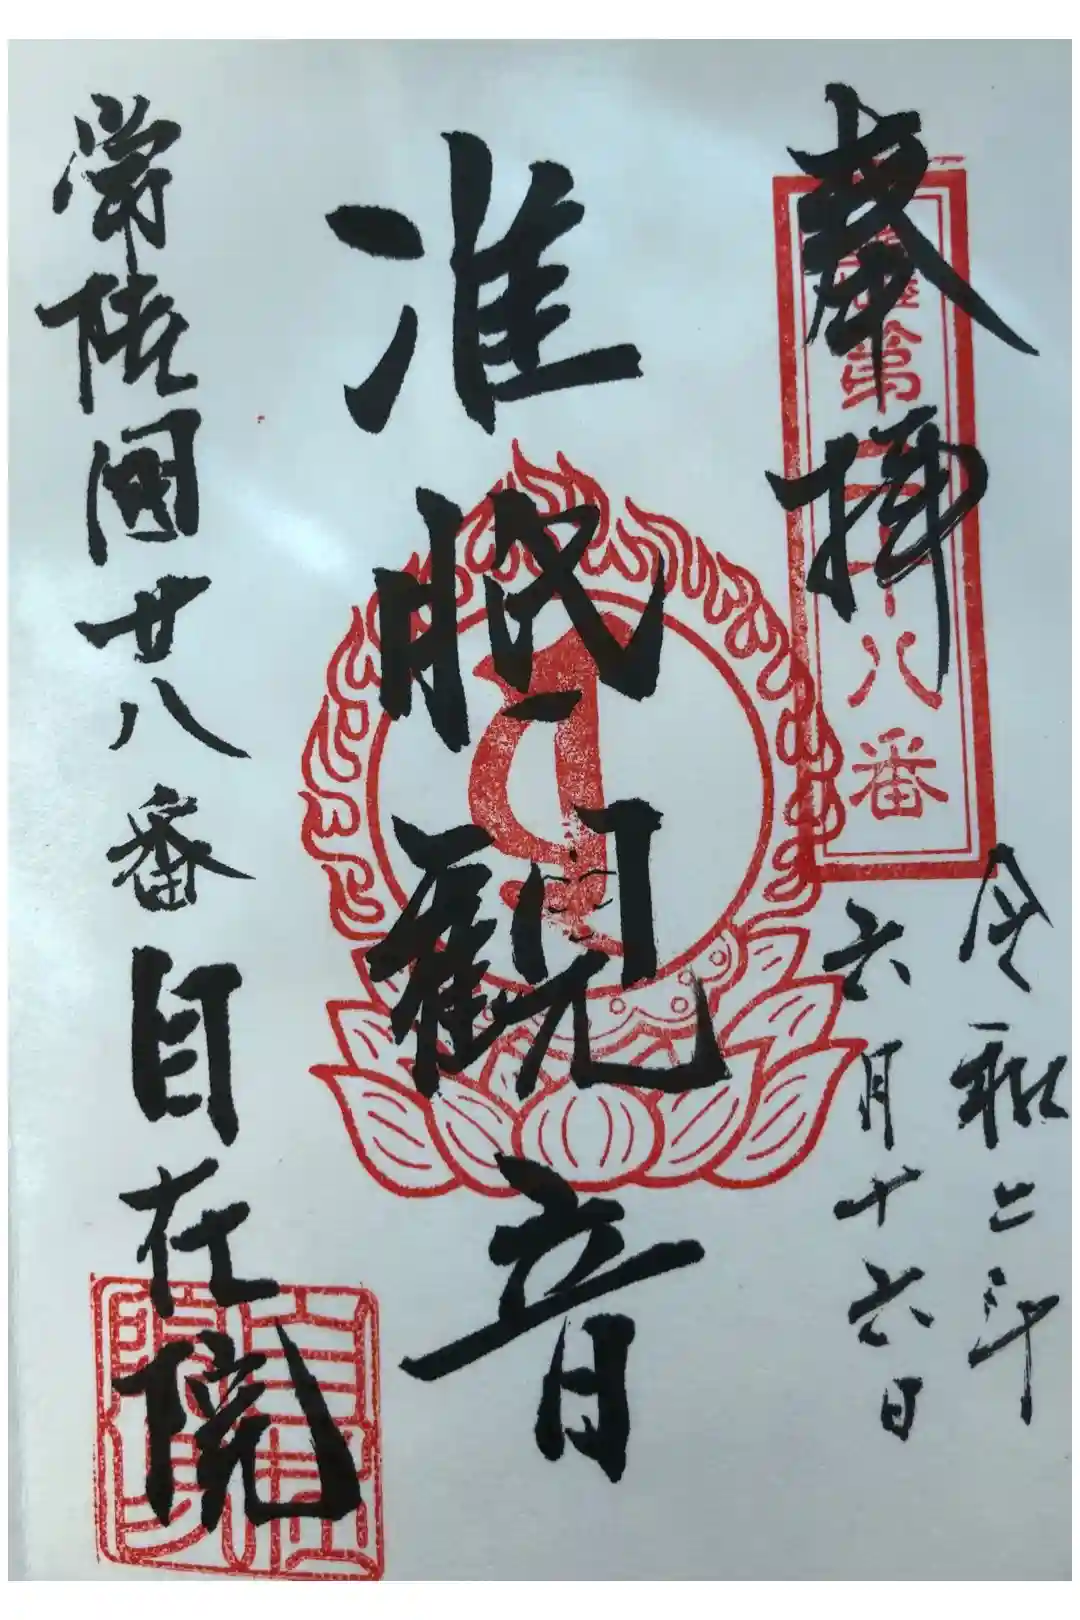 奉拝
第二十八番
令和二年
六月十六日
准胝観音
常陸國廿八番自在院
自在院